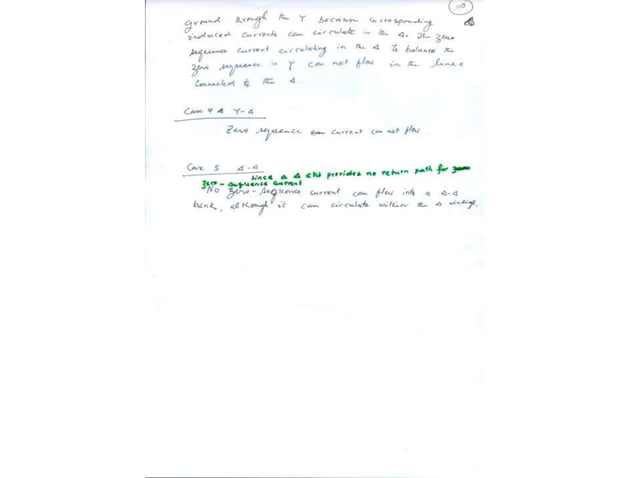 110
ground through the Y because corresponding
induced currents can circulate in the Δ. The zero
sequence current circulating in the Δ to balance the
zero sequence in Y can not flow in the lines
connected to the Δ.
Case 4 Y-Δ
Zero sequence current can not flow.
Case 5 Δ-Δ
since a Δ ckt provides no return path for zero
zero-sequence current
No zero-sequence current can flow into a Δ-Δ
bank, although it can circulate within the Δ windings.